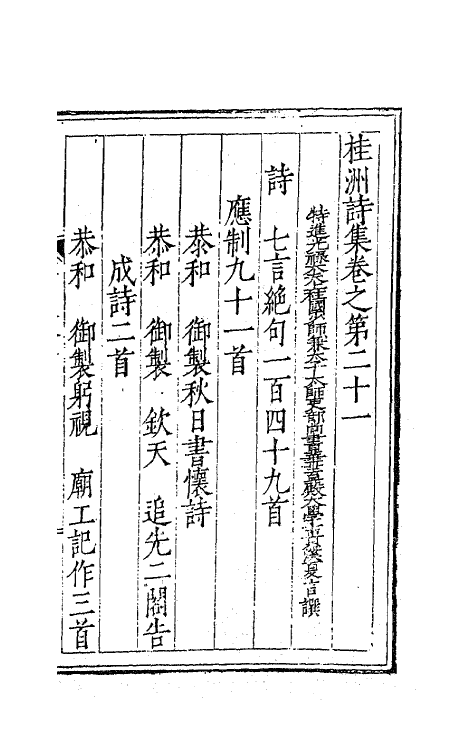 桂洲詩集卷之第二十一
特進光祿大夫上柱國少師兼太子太師吏部尚書華蓋殿大學士貴溪夏言譔
詩　七言絶句一百四十九首
應制九十一首
恭和　御製秋日書懷詩
恭和　御製　欽天　追先二閣告
成詩二首
恭和　御製躬視　廟工記作三首